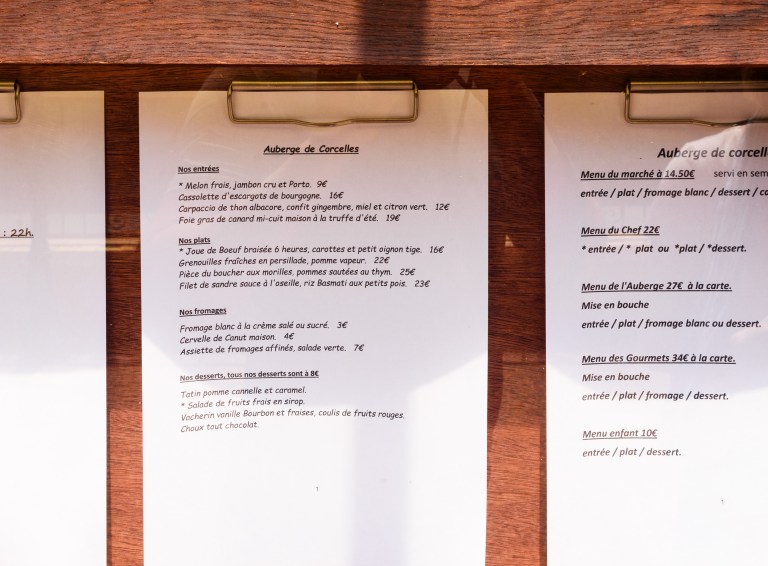 : 22h.
Auberge de Corcelles
Nos entrées
* Melon frais, jambon cru et Porto. 9€
Cassolette d'escargots de bourgogne. 16€
Carpaccio de thon albacore, confit gingembre, miel et citron vert. 12€
Foie gras de canard mi-cuit maison à la truffe d'été. 19€
Nos plats
* Joue de Boeuf braisée 6 heures, carottes et petit oignon tige. 16€
Grenouilles fraîches en persillade, pomme vapeur. 22€
Pièce du boucher aux morilles, pommes sautées au thym. 25€
Filet de sandre sauce à l'oseille, riz Basmati aux petits pois. 23€
Nos fromages
Fromage blanc à la crème salé ou sucré. 3€
Cervelle de Canut maison. 4€
Assiette de fromages affinés, salade verte. 7€
Nos desserts, tous nos desserts sont à 8€
Tatin pomme cannelle et caramel.
* Salade de fruits frais en sirop.
Vacherin vanille Bourbon et fraises, coulis de fruits rouges.
Choux tout chocolat.
1
Auberge de corcell
Menu du marché à 14.50€ servi en sem
entrée / plat / fromage blanc / dessert / ca
Menu du Chef 22€
* entrée / * plat ou *plat / *dessert.
Menu de l'Auberge 27€ à la carte.
Mise en bouche
entrée / plat / fromage blanc ou dessert.
Menu des Gourmets 34€ à la carte.
Mise en bouche
entrée / plat / fromage / dessert.
Menu enfant 10€
entrée / plat / dessert.
1